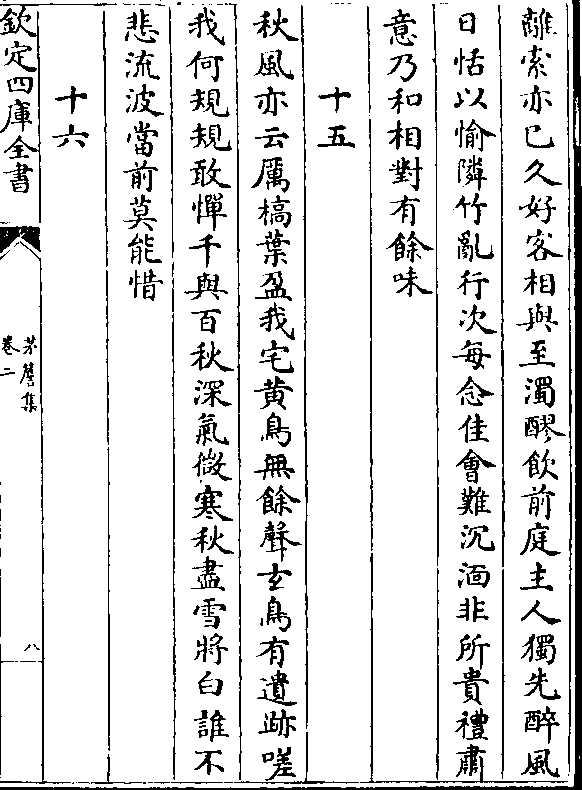 離索亦已久好客相與至濁醪飲前庭主人獨先醉風
日恬以愉隣竹亂行次每念佳會難沉湎非所貴禮肅
意乃和相對有餘味
十五
秋風亦云厲槁葉盈我宅黄鳥無餘聲玄鳥有遺跡嗟
我何規規敢憚千與百秋深氣微寒秋盡雪將白誰不
悲流波當前莫能惜
十六
欽定四庫全書
茅簷集
卷二
八